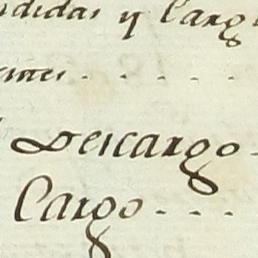 didas y Carg
Descargo
Cargo - - -